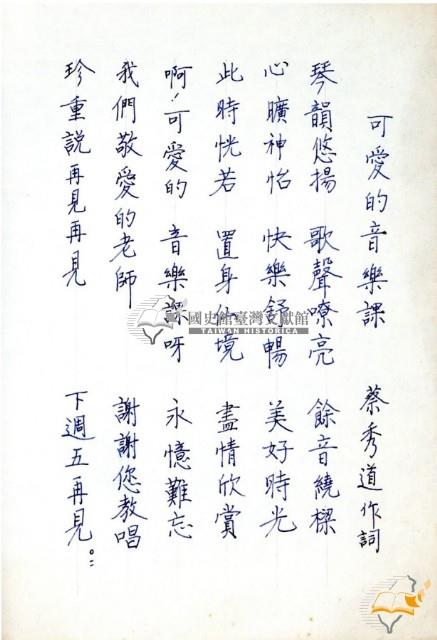 可愛的音樂課 蔡秀道作詞
琴韻悠揚 歌聲嘹亮 餘音繞樑
心曠神怡 快樂舒暢 美好時光
此時恍若 置身仙境 盡情欣賞
啊！可愛的 音樂課呀 永憶難忘
我們敬愛的老師 謝謝您教唱
珍重說再見再見 下週五再見。
國史館臺灣文獻館
TAIWAN HISTORICA